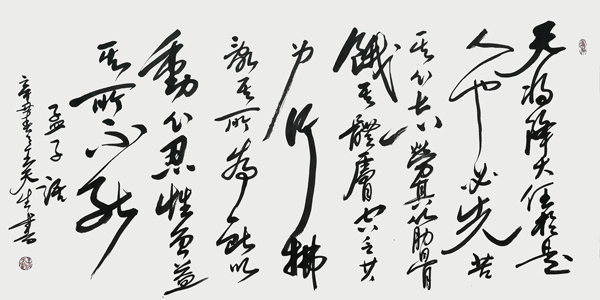 天将降大任於是
人也必先苦
其心志勞其筋骨
餓其體膚空乏其
身行拂
亂其所為所以
動心忍性曾益
其所不能
孟子語
辛卯